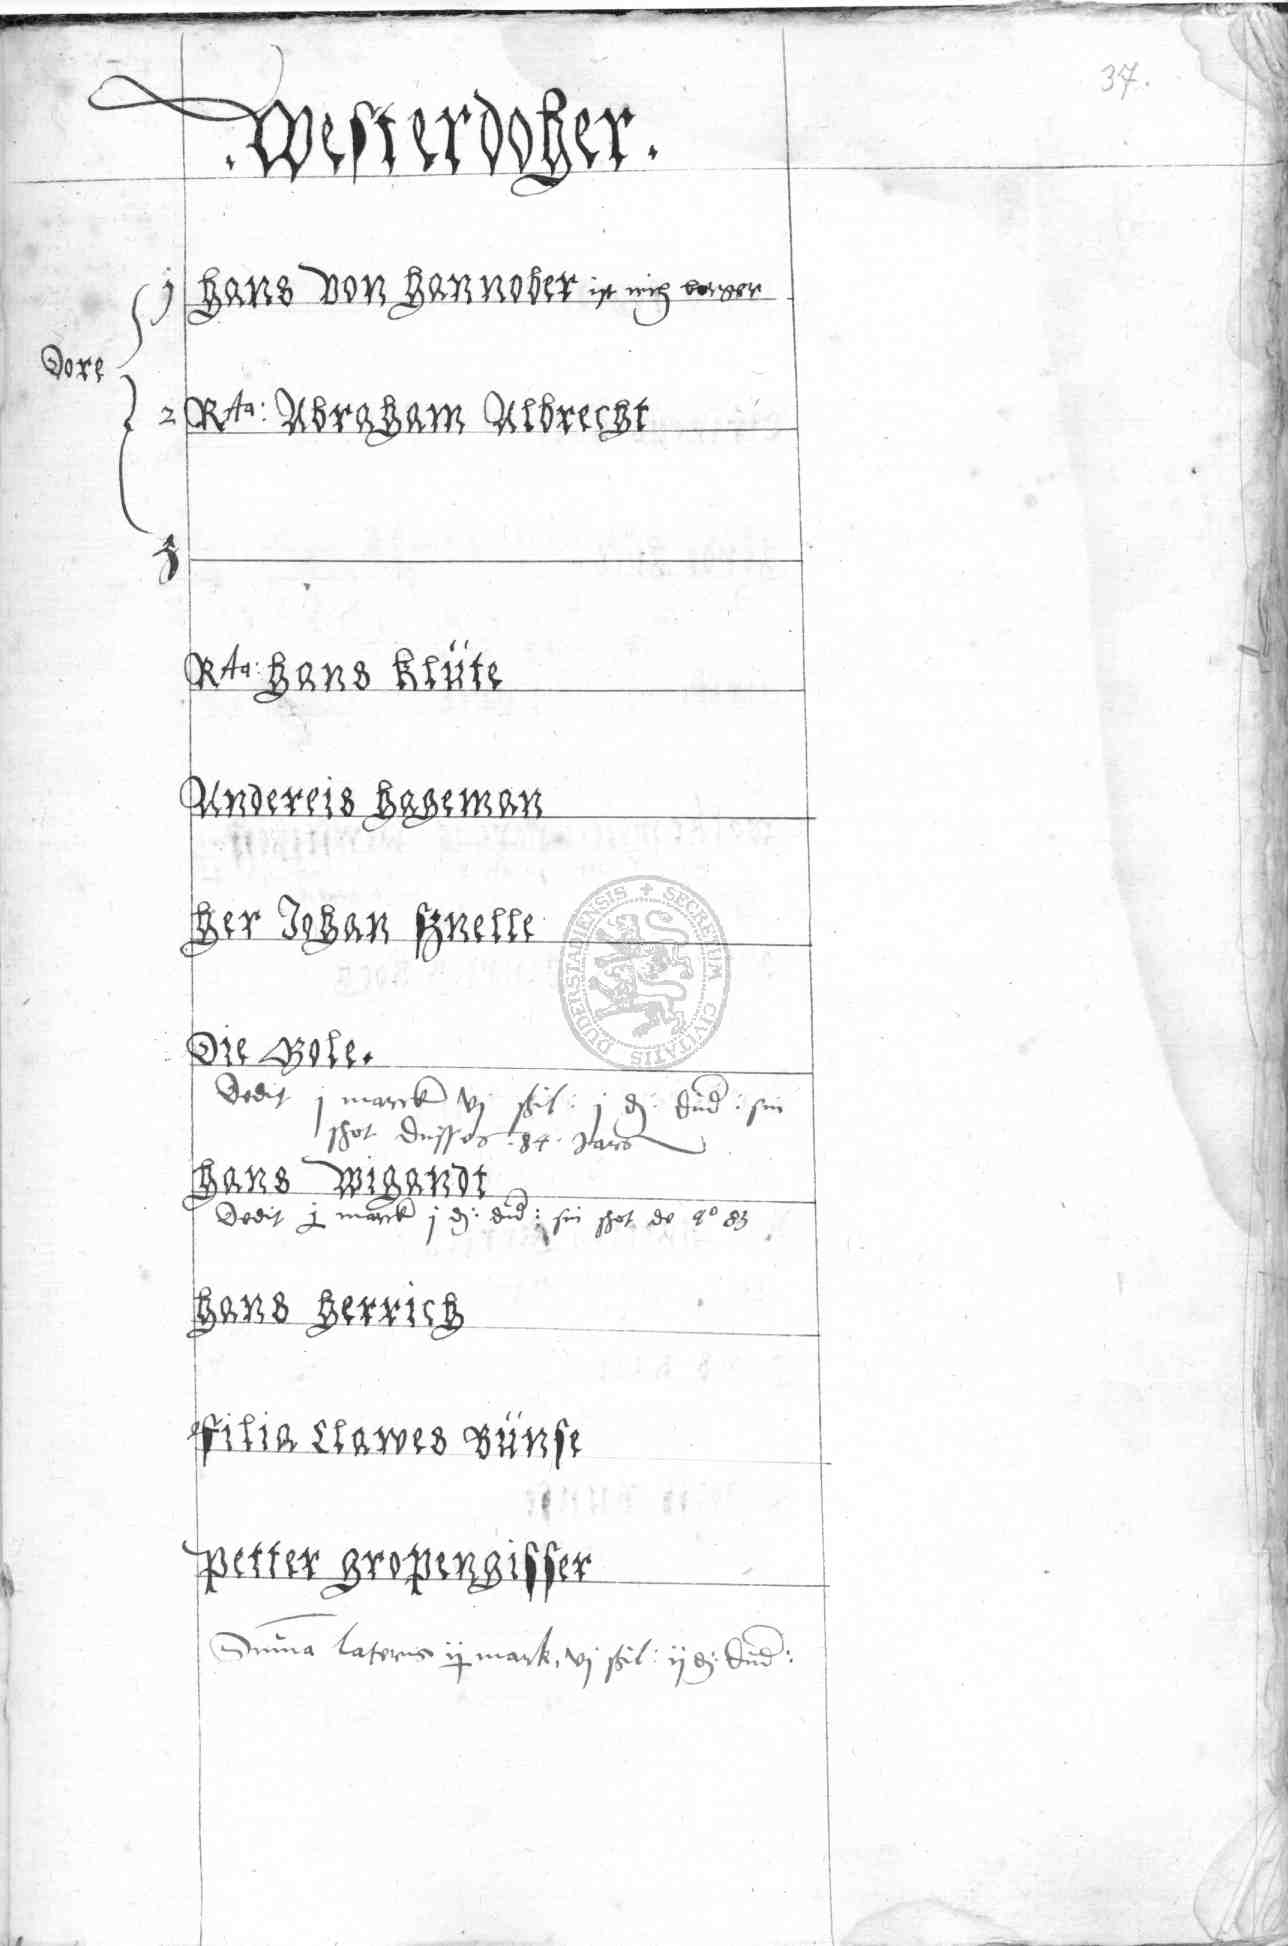 37.
.Westerdoher.
j Hans von Hannober ist nich borger
Dore
2 Rta: Abraham Albrecht
3
Rta: Hans Klüte
Andereis Hageman
Her Johan Snelle
Die Bole.
Dedit j marck vj shil: j d: dud: sin
shot dusses .84. Jars
Hans Wigandt
Dedit j marck j d: dud: sin shot de ao 83
Hans Herrich
Filia Clawes Bünse
Petter gropengisser
Summa lateris ij mark, vj shil: ij d: dud:
SECRETUM CIVITATIS DUDERSTADIENSIS